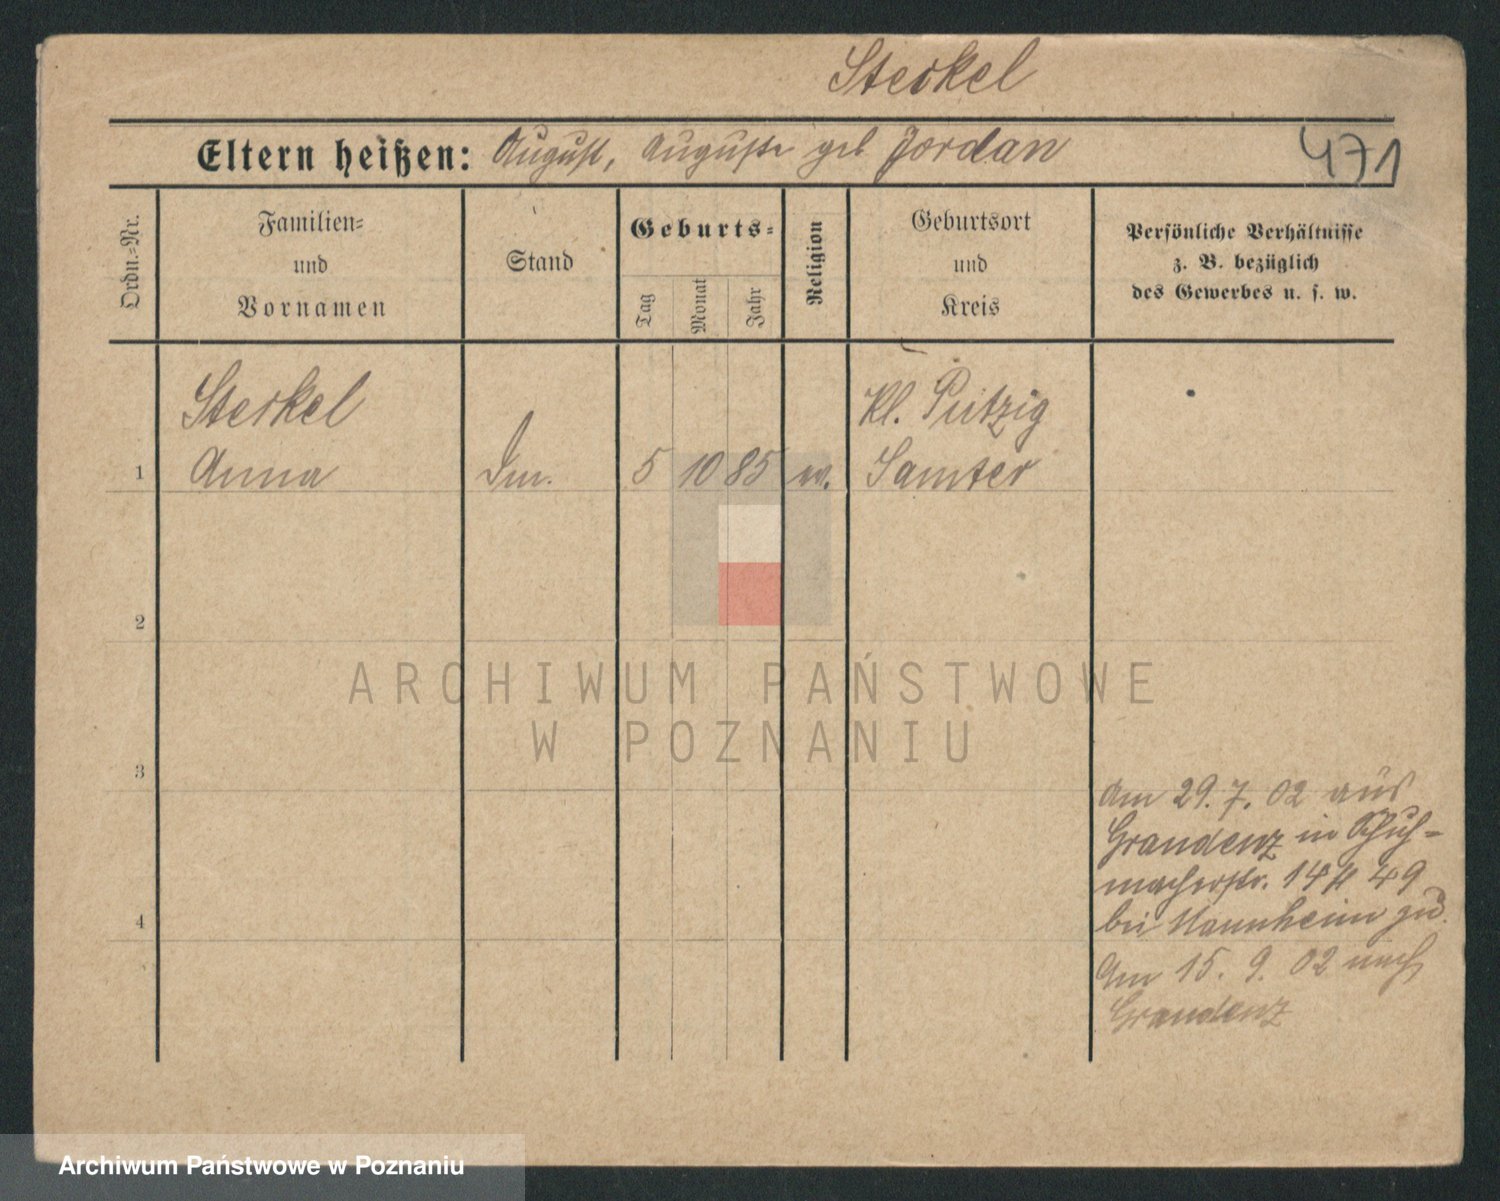 Sterkel
Eltern heißen: August, Auguste geb Jordan
471
Ordn.-Nr.
Familien- und Vornamen
Stand
Geburts-
Tag
Monat
Jahr
Religion
Geburtsort und Kreis
Persönliche Verhältnisse
z. B. bezüglich
des Gewerbes u. s. w.
Sterkel
Kl.
1 Anna 5 10 85 Samter
2
ARCHIWUM PAŃSTWOWE
W POZNANIU
3
4
Am 29. 7. 02 aus
Graudenz in Schuh-
macherstr. 14
bei Mannheim
Am 15. 9. 02 nach
Graudenz
Archiwum Państwowe w Poznaniu